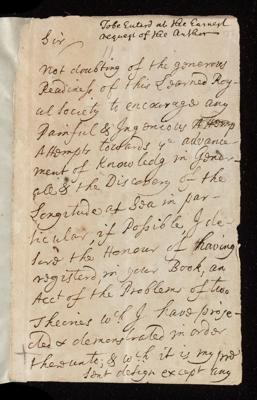 To be Enterd at the Earnest
request of the Author
Sir
Not doubting of the generous
Readiness of this Learned Roy-
al Society to encourage any
Painful & Ingenious
Attempts towards ye advance-
ment of Knowledg in Gener-
ale & the Discovery of the
Longitude at Sea in par-
ticular, if Possible, I de-
sire the Honour of having
registerd in your Book, an
Act of the Problems of two
Theories wch I have proje-
cted & demonstrated in order
thereunto; & wch it is my pre
sent design except any